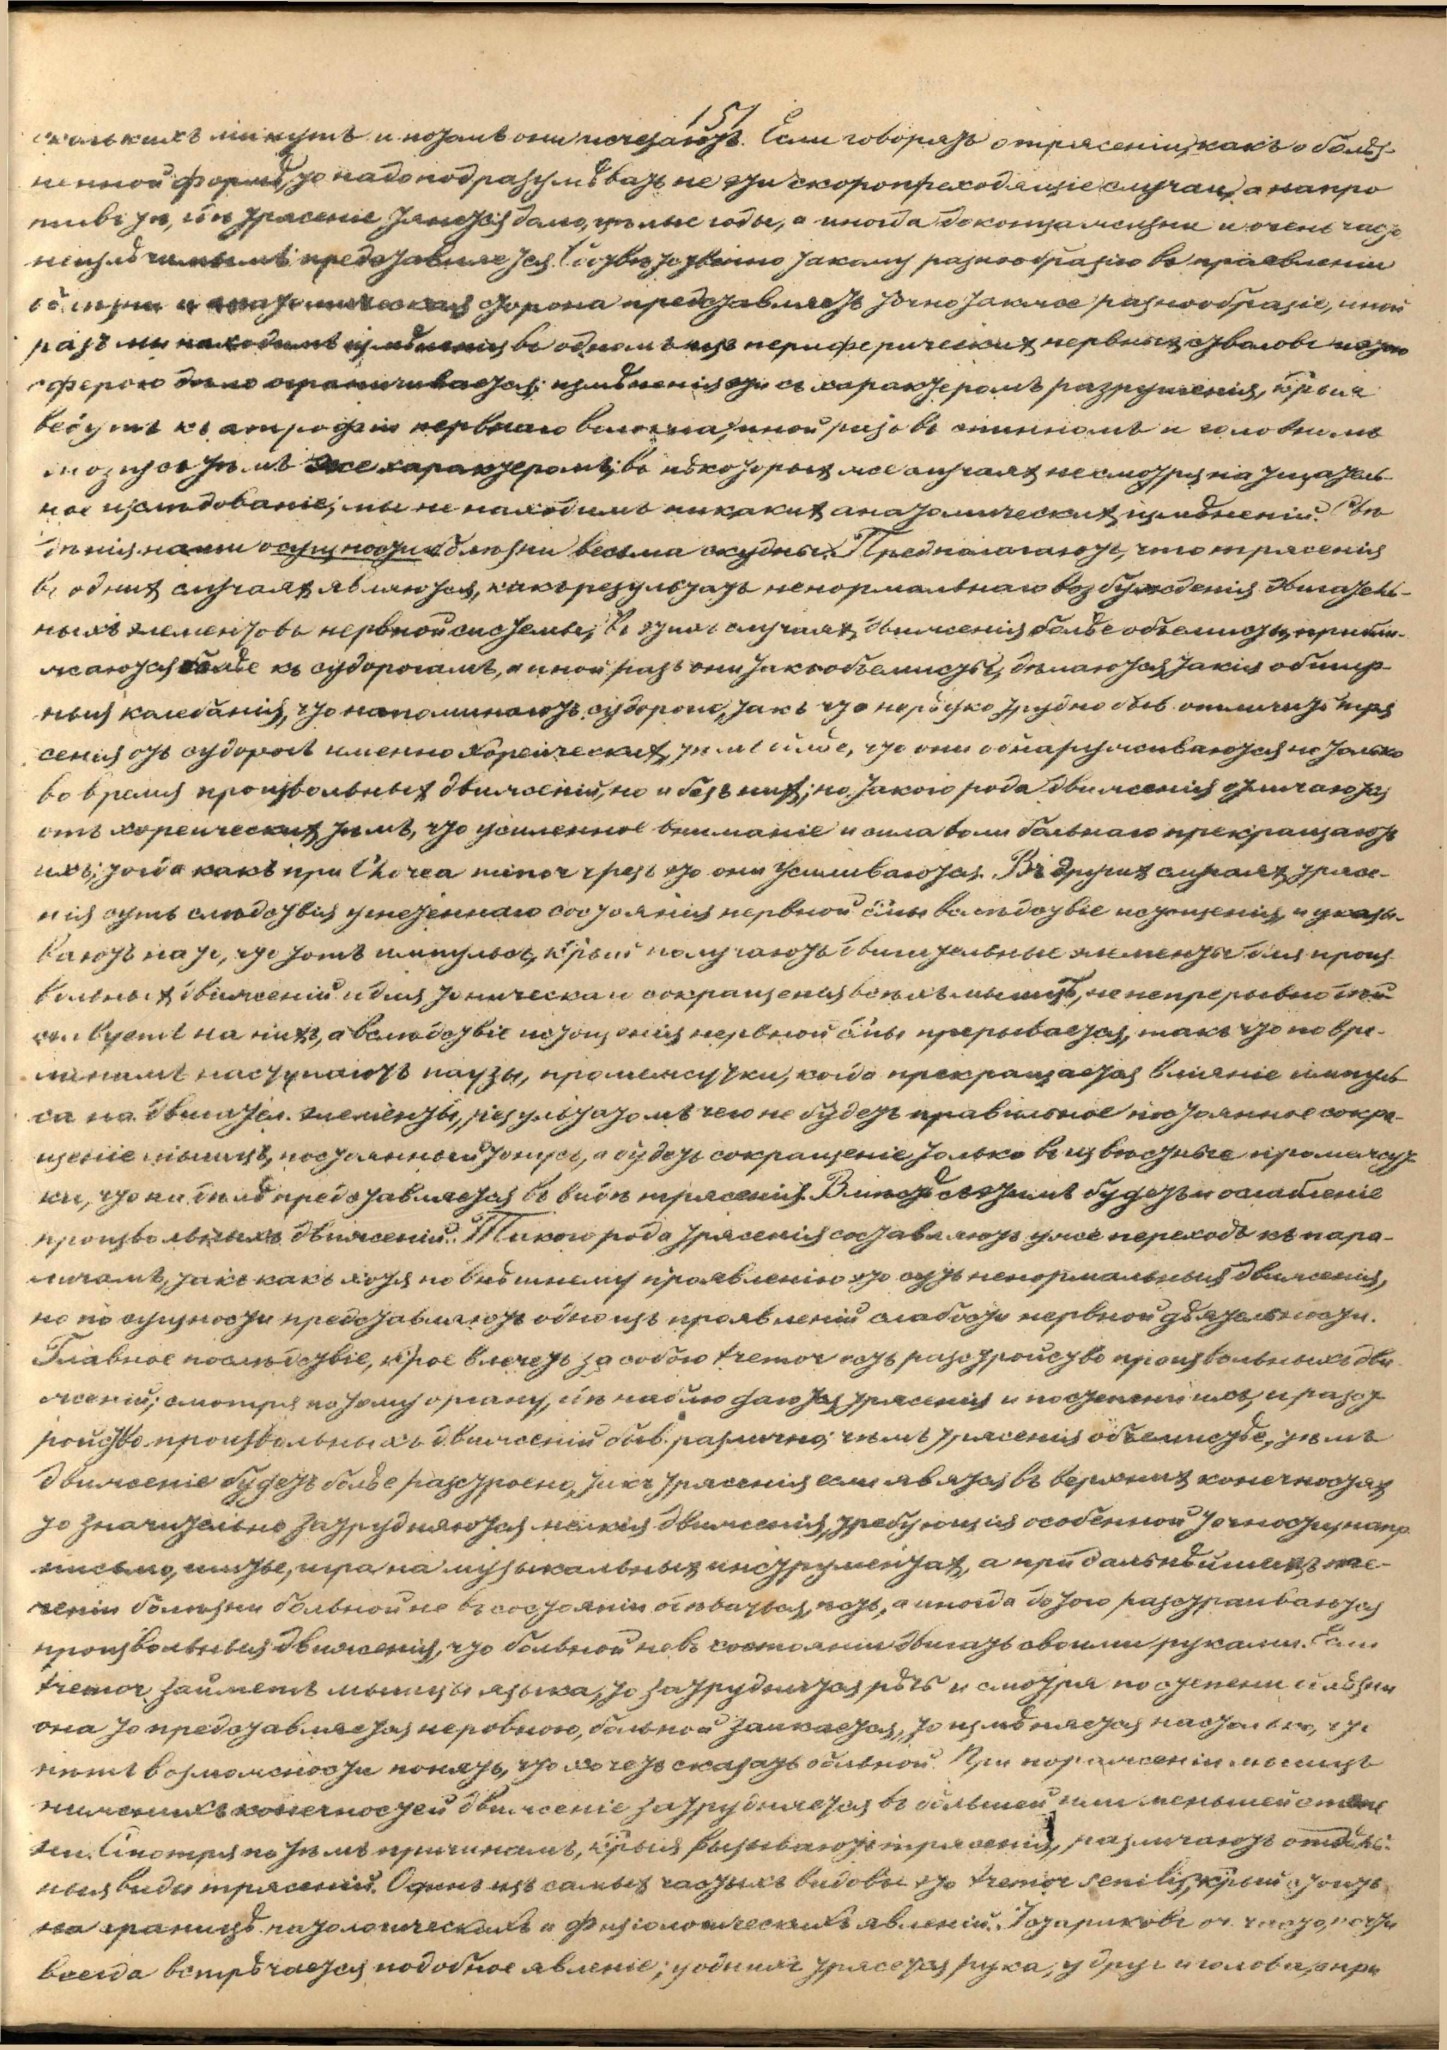 151
скольких минутъ и потомъ они исчезаютъ. Если говорятъ о трясеніи, какъ о болѣз-
ненной формѣ, то надо подразумѣвать не эти скоропреходящіе случаи, а напро
тивъ тѣ, гдѣ трясеніе тянется долго, цѣлые годы, а иногда до конца жизни и очень часто
неизлѣчимымъ представляется. Соотвѣтственно такому разнообразію въ проявленіи
болѣзни и анатомическая сторона представляетъ точно такое разнообразіе, иной
разъ мы находимъ измѣненія въ одномъ изъ периферическихъ нервныхъ стволовъ и этою
сферою дѣло ограничивается; измѣненія эти съ характеромъ разрушенія, к͠рыя
ведутъ къ атрофіи нервнаго волокна, иной разъ въ спинномъ и головномъ
мозгу съ тѣмъ же характеромъ; въ нѣкоторыхъ же случаяхъ несмотря на тщатель-
ное изслѣдованіе, мы не находимъ никакихъ анатомическихъ измѣненій. Свѣ
дѣнія наши о сущности болѣзни весьма скудны. Предполагаютъ, что трясенія
въ однихъ случаяхъ являются, какъ результатъ ненормальнаго возбужденія двигатель-
ныхъ элементовъ нервной системы; въ этихъ случаяхъ движенія болѣе объемисты, прибли-
жаются болѣе къ судорогамъ, а иной разъ они такъ объемисты, дѣлаются такія обшир-
ныя колебанія, что напоминаютъ судороги, такъ что нерѣдко трудно быв. отличить тря
сенія отъ судорогъ именно хореическихъ, тѣмъ болѣе, что они обнаруживаются не только
во время произвольныхъ движеній, но и безъ нихъ; но такого рода движенія отличаются
отъ хореическихъ тѣмъ, что усиленное вниманіе и сила воли больнаго прекращаютъ
ихъ; тогда какъ при Chorea minor чрезъ это они усиливаются. Въ другихъ случаяхъ трясе-
нія суть слѣдствія угнетеннаго состоянія нервной с͠мы вслѣдствіе истощенія, и указы-
ваютъ на то, что тотъ импульсъ, к͠рый получаютъ двигательные элементы для произ
вольныхъ движеній и для тоническаго сокращенія всѣхъ мышцъ, не непрерывно дѣй
ствуетъ на нихъ, а вслѣдствіе истощенія нервной с͠мы прерывается, такъ что по вре-
менамъ наступаютъ паузы, промежутки, когда прекращается вліяніе импуль
са на двигател. элементы, результатомъ чего не будетъ правильное постоянное сокра-
щеніе мышцъ, постоянный тонусъ, а будетъ сокращеніе только въ извѣстные промежут
ки, что на дѣлѣ представляется въ видѣ трясенія. Вмѣстѣ съ этимъ будетъ и ослабленіе
произвольныхъ движеній. Такого рода трясенія составляютъ уже переходъ къ пара-
личамъ, такъ какъ хотя по внѣшнему проявленію это суть ненормальныя движенія,
но по сущности представляютъ одно изъ проявленій слабости нервной дѣятельности.
Главное послѣдствіе, к͠рое влечетъ за собою tremor есть разстройство произвольныхъ дви
женій; смотря по тому органу, гдѣ наблюдаются трясенія и по степени ихъ и разст
ройство произвольныхъ движеній быв. различно; чѣмъ трясенія объемистѣе, тѣмъ
движеніе будетъ болѣе разстроено, такъ трясенія если явятся въ верхнихъ конечностяхъ
то значительно затрудняются мелкія движенія, требующія особенной точности, напр.
письмо, шитье, игра на музыкальныхъ инструментахъ, а при дальнѣйшемъ те-
ченіи болѣзни больной не въ состояніи одѣваться, ѣсть, а иногда до того разстраиваются
произвольныя движенія, что больной не въ состояніи двигать своими руками. Если
tremor займетъ мышцы языка, то затруднится рѣчь и смотря по степени болѣзни
она то представляется неровною, больной заикается, то измѣняется настолько, что
нѣтъ возможности понять, что хочетъ сказать больной. При пораженіи мышцъ
нижнихъ конечностей движеніе затрудняется въ большей или меньшей степе
ни. Смотря по тѣмъ причинамъ, к͠рыя вызываютъ трясенія, различаютъ отдѣль-
ныя виды трясеній. Одинъ изъ самыхъ частыхъ видовъ это tremor senilis, к͠рый стоитъ
на границѣ патологическихъ и физіологическихъ явленій. У стариковъ оч. часто, почти
всегда встрѣчается подобное явленіе; у однихъ трясется рука, у друг. и голова, а при